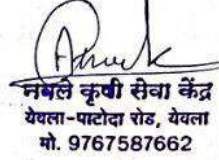 नवले कृषी सेवा केंद्र
येवला-पाटोदा रोड, येवला
मो. 9767587662